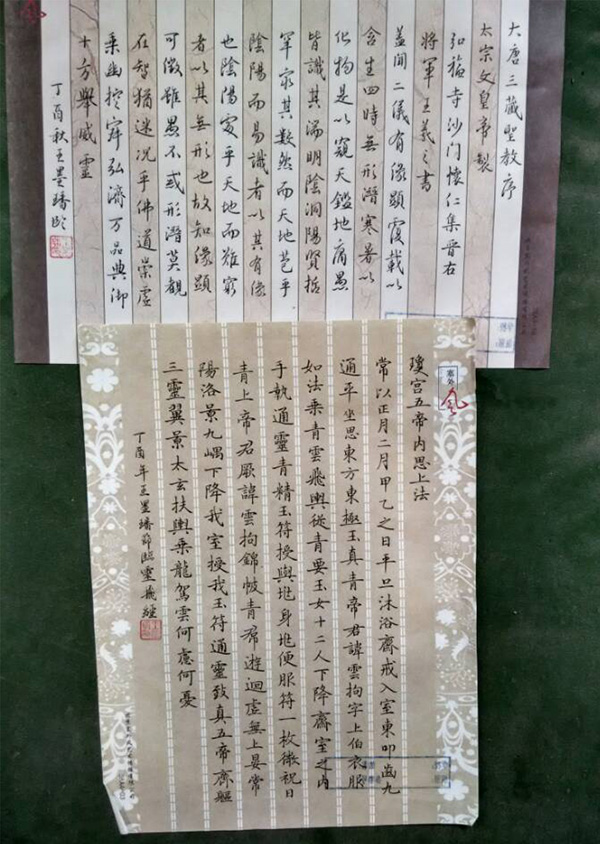 大唐三藏聖教序
太宗文皇帝製
弘福寺沙门懷仁集晉右
將軍王羲之書
盖聞二儀有像顯覆載以
含生四時無形潛寒暑以
化物是以窺天鑑地庸愚
皆識其端明陰洞陽賢哲
罕窮其數然而天地苞乎
陰陽而易識者以其有像
也陰陽處乎天地而難窮
者以其無形也故知像顯
可徵雖愚不惑形潛莫覩
在智猶迷况乎佛道崇虛
乘幽控寂弘濟万品典御
十方舉威靈
丁酉秋王墨璠臨
瓊宫五帝内思上法
常以正月二月甲乙之日平旦沐浴齋戒入室東叩齒九
通平坐思東方東極玉真青帝君諱雲拘字上伯衣服
如法乘青雲飛輿從青要玉女十二人下降齋室之内
手執通靈青精玉符授與兆身兆便服符一枚微祝曰
青上帝君厥諱雲拘錦帔青帬遊迴虚無上晏常
陽洛景九嵎下降我室授我玉符通靈致真五帝齊軀
三靈翼景太玄扶輿乘龍駕雲何慮何憂
丁酉年王墨璠節臨靈飛經